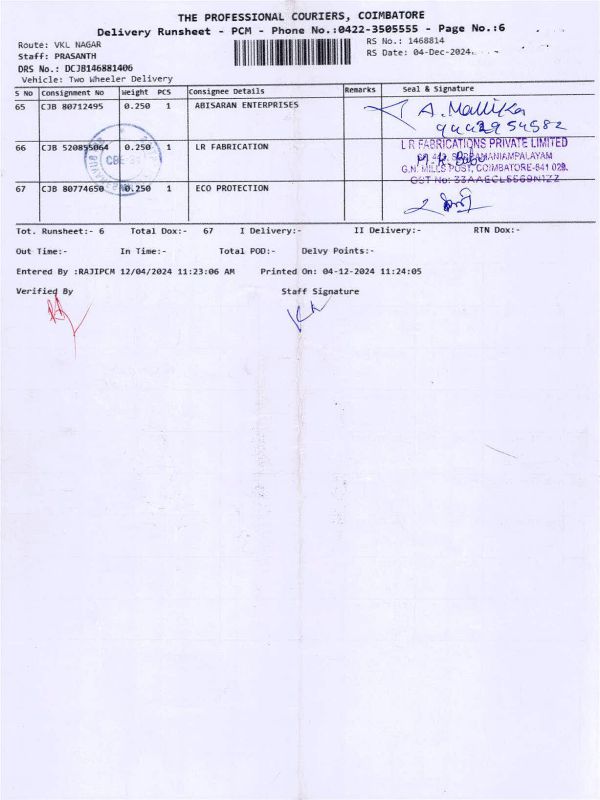 THE PROFESSIONAL COURIERS, COIMBATORE
Delivery Runsheet - PCM - Phone No.:0422-3505555 - Page No.:6
Route: VKL NAGAR
RS No.: 1468814
Staff: PRASANTH
RS Date: 04-Dec-2024
DRS No.: DCJB146881406
Vehicle: Two Wheeler Delivery
S No Consignment No Weight PCS Consignee Details Remarks Seal & Signature
65 CJB 80712495 0.250 1 ABISARAN ENTERPRISES A. Mallika
66 CJB 520855064 0.250 1 LR FABRICATION L R FABRICATIONS PRIVATE LIMITED
G.N. MILLS POST, COIMBATORE-641 029.
67 CJB 80774650 0.250 1 ECO PROTECTION
Tot. Runsheet:- 6 Total Dox:- 67 I Delivery:- II Delivery:- RTN Dox:-
Out Time:- In Time:- Total POD:- Delvy Points:-
Entered By :RAJIPCM 12/04/2024 11:23:06 AM Printed On: 04-12-2024 11:24:05
Verified By Staff Signature